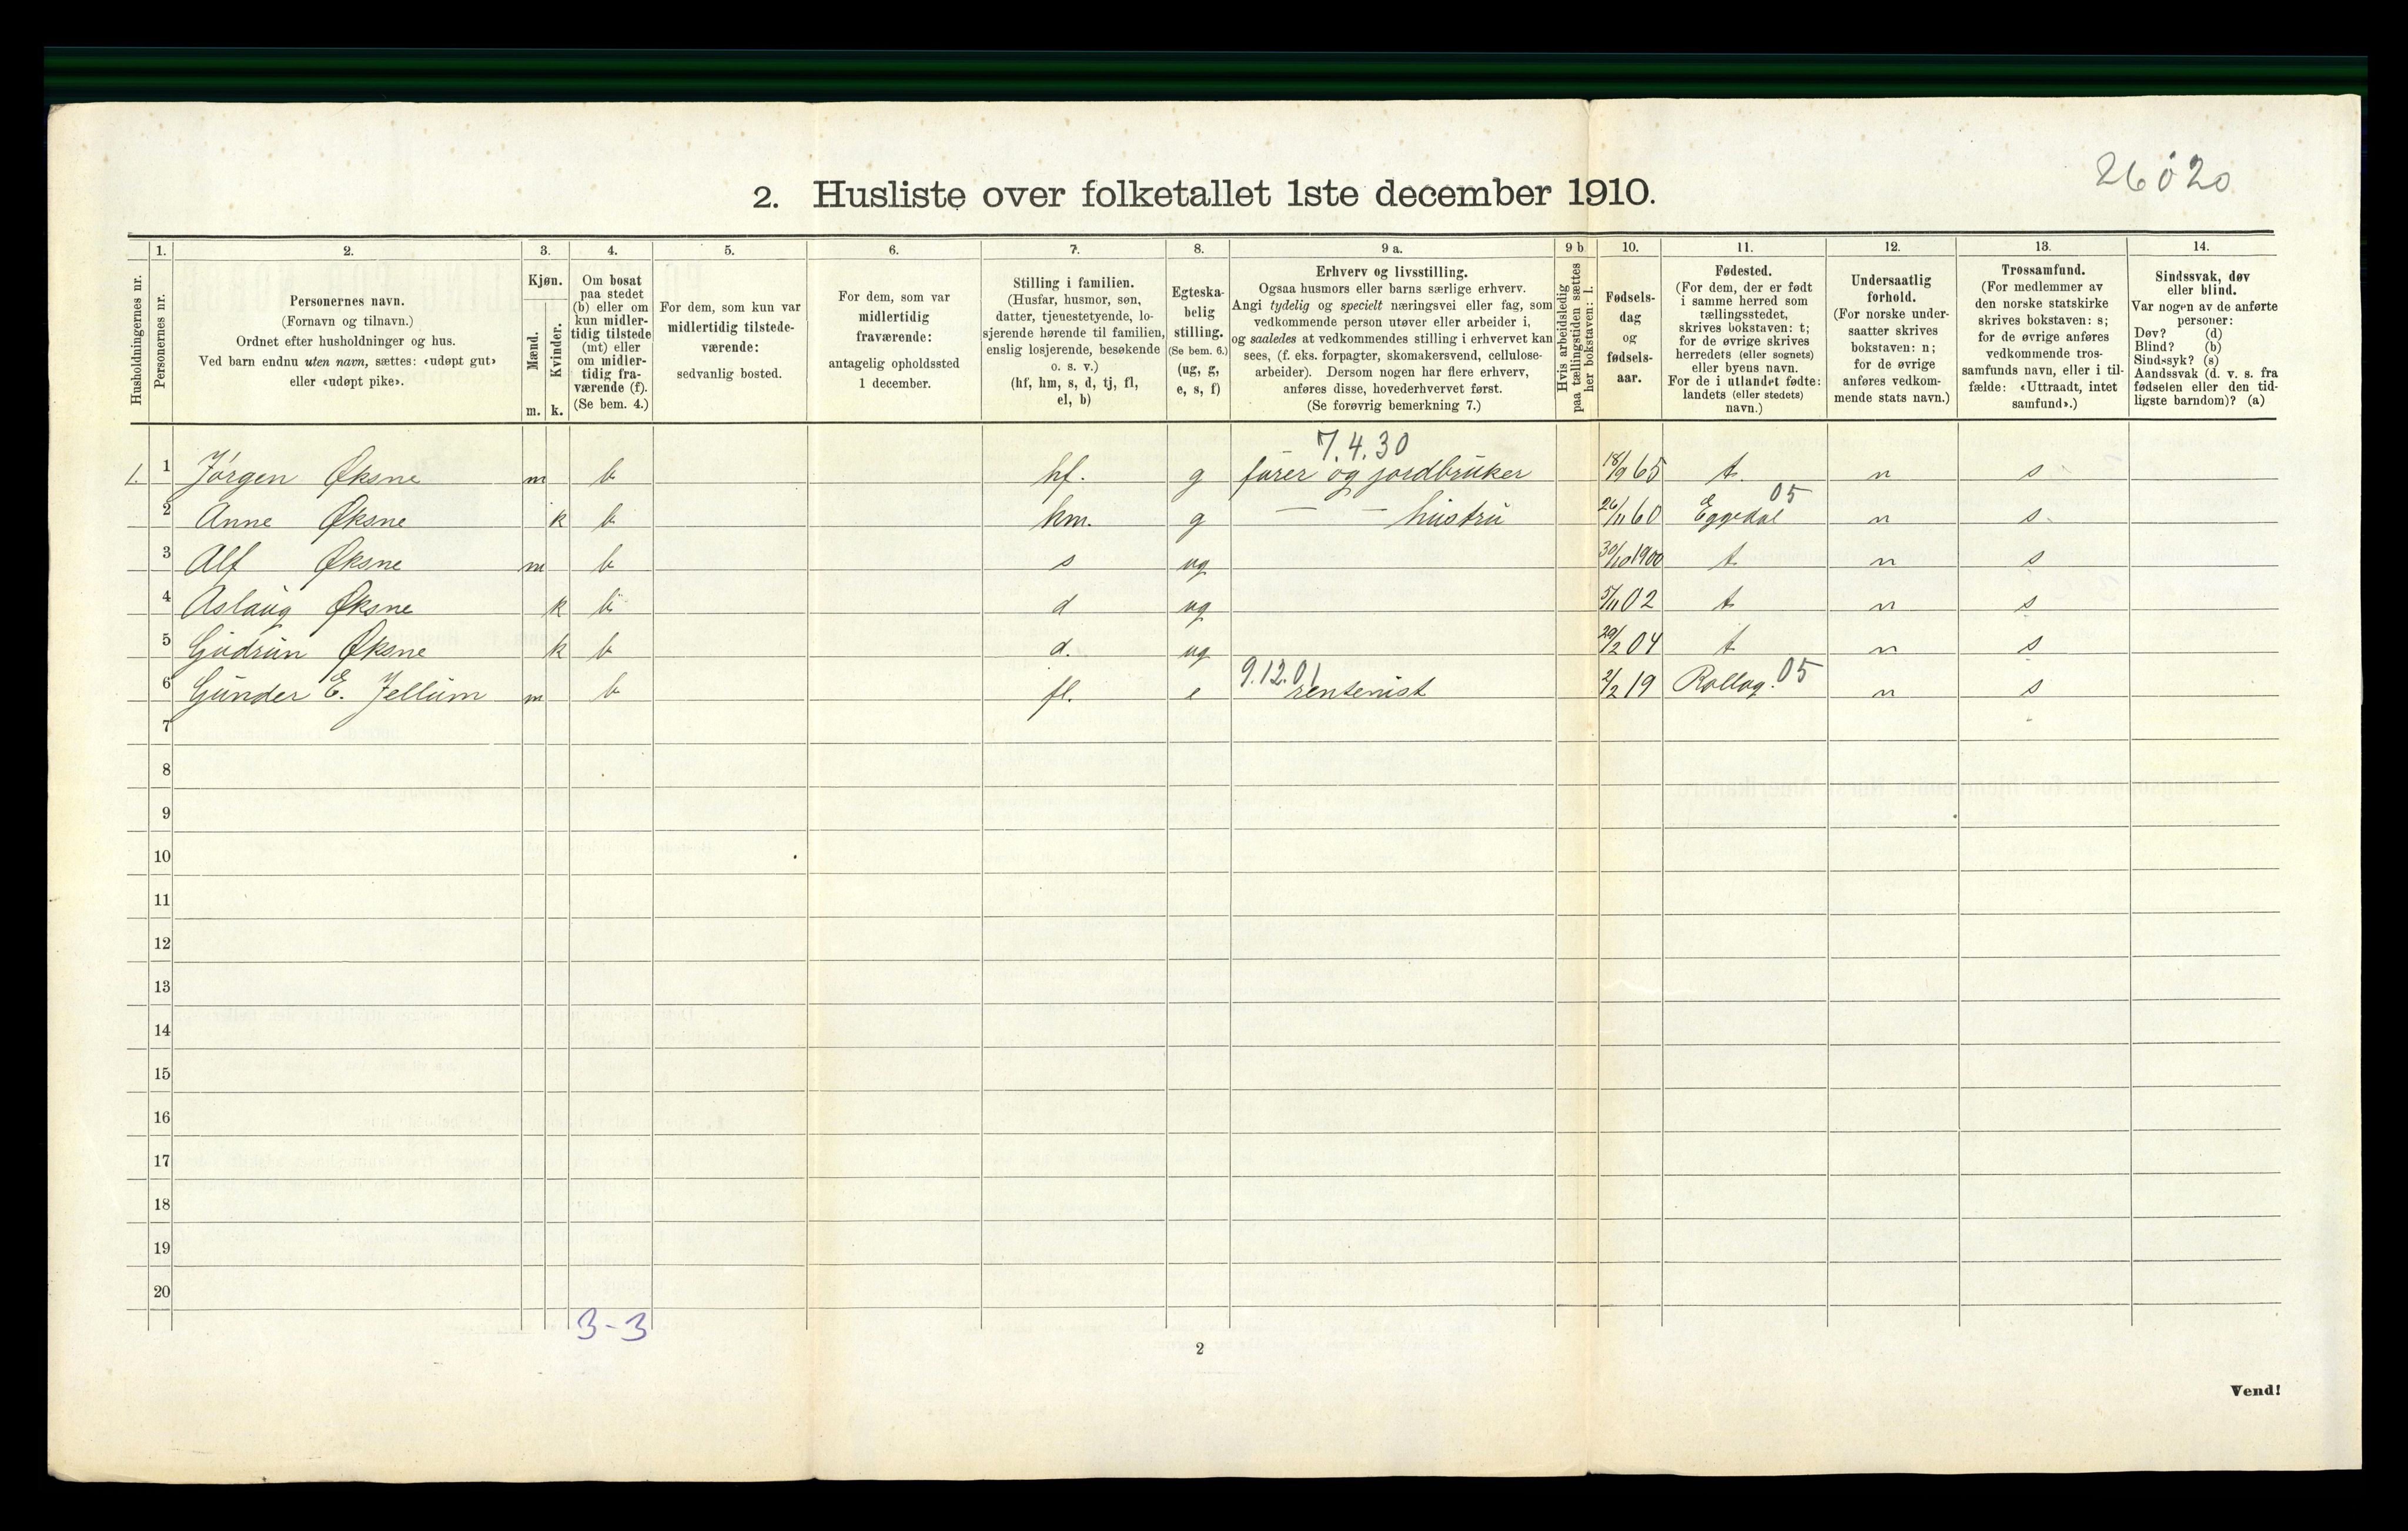 26020
2. Husliste over folketallet 1ste december 1910.
Husholdningernes nr.
1.
Personernes nr.
2.
Personernes navn.
(Fornavn og tilnavn.)
Ordnet efter husholdninger og hus.
Ved barn endnu uten navn, sættes: «udøpt gut»
eller «udøpt pike».
3.
Kjøn.
Mænd.
m.
Kvinder.
k.
4.
Om bosat
paa stedet
(b) eller om
kun midler-
tidig tilstede
(mt) eller
om midler-
tidig fra-
værende (f).
(Se bem. 4.)
5.
For dem, som kun var
midlertidig tilstede-
værende:
sedvanlig bosted.
6.
For dem, som var
midlertidig
fraværende:
antagelig opholdssted
1 december.
7.
Stilling i familien.
(Husfar, husmor, søn,
datter, tjenestetyende, lo-
sjerende hørende til familien,
enslig losjerende, besøkende
o. s. v.)
(hf, hm, s, d, tj, fl,
el, b)
8.
Egteska-
belig
stilling.
(Se bem. 6.)
(ug, g,
e, s, f)
9 a.
Erhverv og livsstilling.
Ogsaa husmors eller barns særlige erhverv.
Angi tydelig og specielt næringsvei eller fag, som
vedkommende person utøver eller arbeider i,
og saaledes at vedkommendes stilling i erhvervet kan
sees, (f. eks. forpagter, skomakersvend, cellulose-
arbeider). Dersom nogen har flere erhverv,
anføres disse, hovederhvervet først.
(Se forøvrig bemerkning 7.)
9 b
Hvis arbeidsledig
paa tællingstiden sættes
her bokstaven: l.
10.
Fødsels-
dag
og
fødsels-
aar.
11.
Fødested.
(For dem, der er født
i samme herred som
tællingsstedet,
skrives bokstaven: t;
for de øvrige skrives
herredets (eller sognets)
eller byens navn.
For de i utlandet fødte:
landets (eller stedets)
navn.)
12.
Undersaatlig
forhold.
(For norske under-
saatter skrives
bokstaven: n;
for de øvrige
anføres vedkom-
mende stats navn.)
13.
Trossamfund.
(For medlemmer av
den norske statskirke
skrives bokstaven: s;
for de øvrige anføres
vedkommende tros-
samfunds navn, eller i til-
fælde: «Uttraadt, intet
samfund».)
14.
Sindssvak, døv
eller blind.
Var nogen av de anførte
personer:
Døv? (d)
Blind? (b)
Sindssyk? (s)
Aandssvak (d. v. s. fra
fødselen eller den tid-
ligste barndom)? (a)
7.4.30
1. 1 Jørgen Øksne m b hf. g fører og jordbruker 18/9 65 t. n s
05
2 Anne Øksne k b hm. g — — hustru 26/11 60 Eggedal n s
3 Alf Øksne m b s ug 30/10 1900 t n s
4 Aslaug Øksne k b d ug 5/11 02 t n s
5 Gudrun Øksne k b d. ug 29/2 04 t n s
9.12.01
6 Gunder E. Jellum m b fl. e rentenist 2/2 19 Rollag. 05 n s
7
8
9
10
11
12
13
14
15
16
17
18
19
20
3-3
2
Vend!